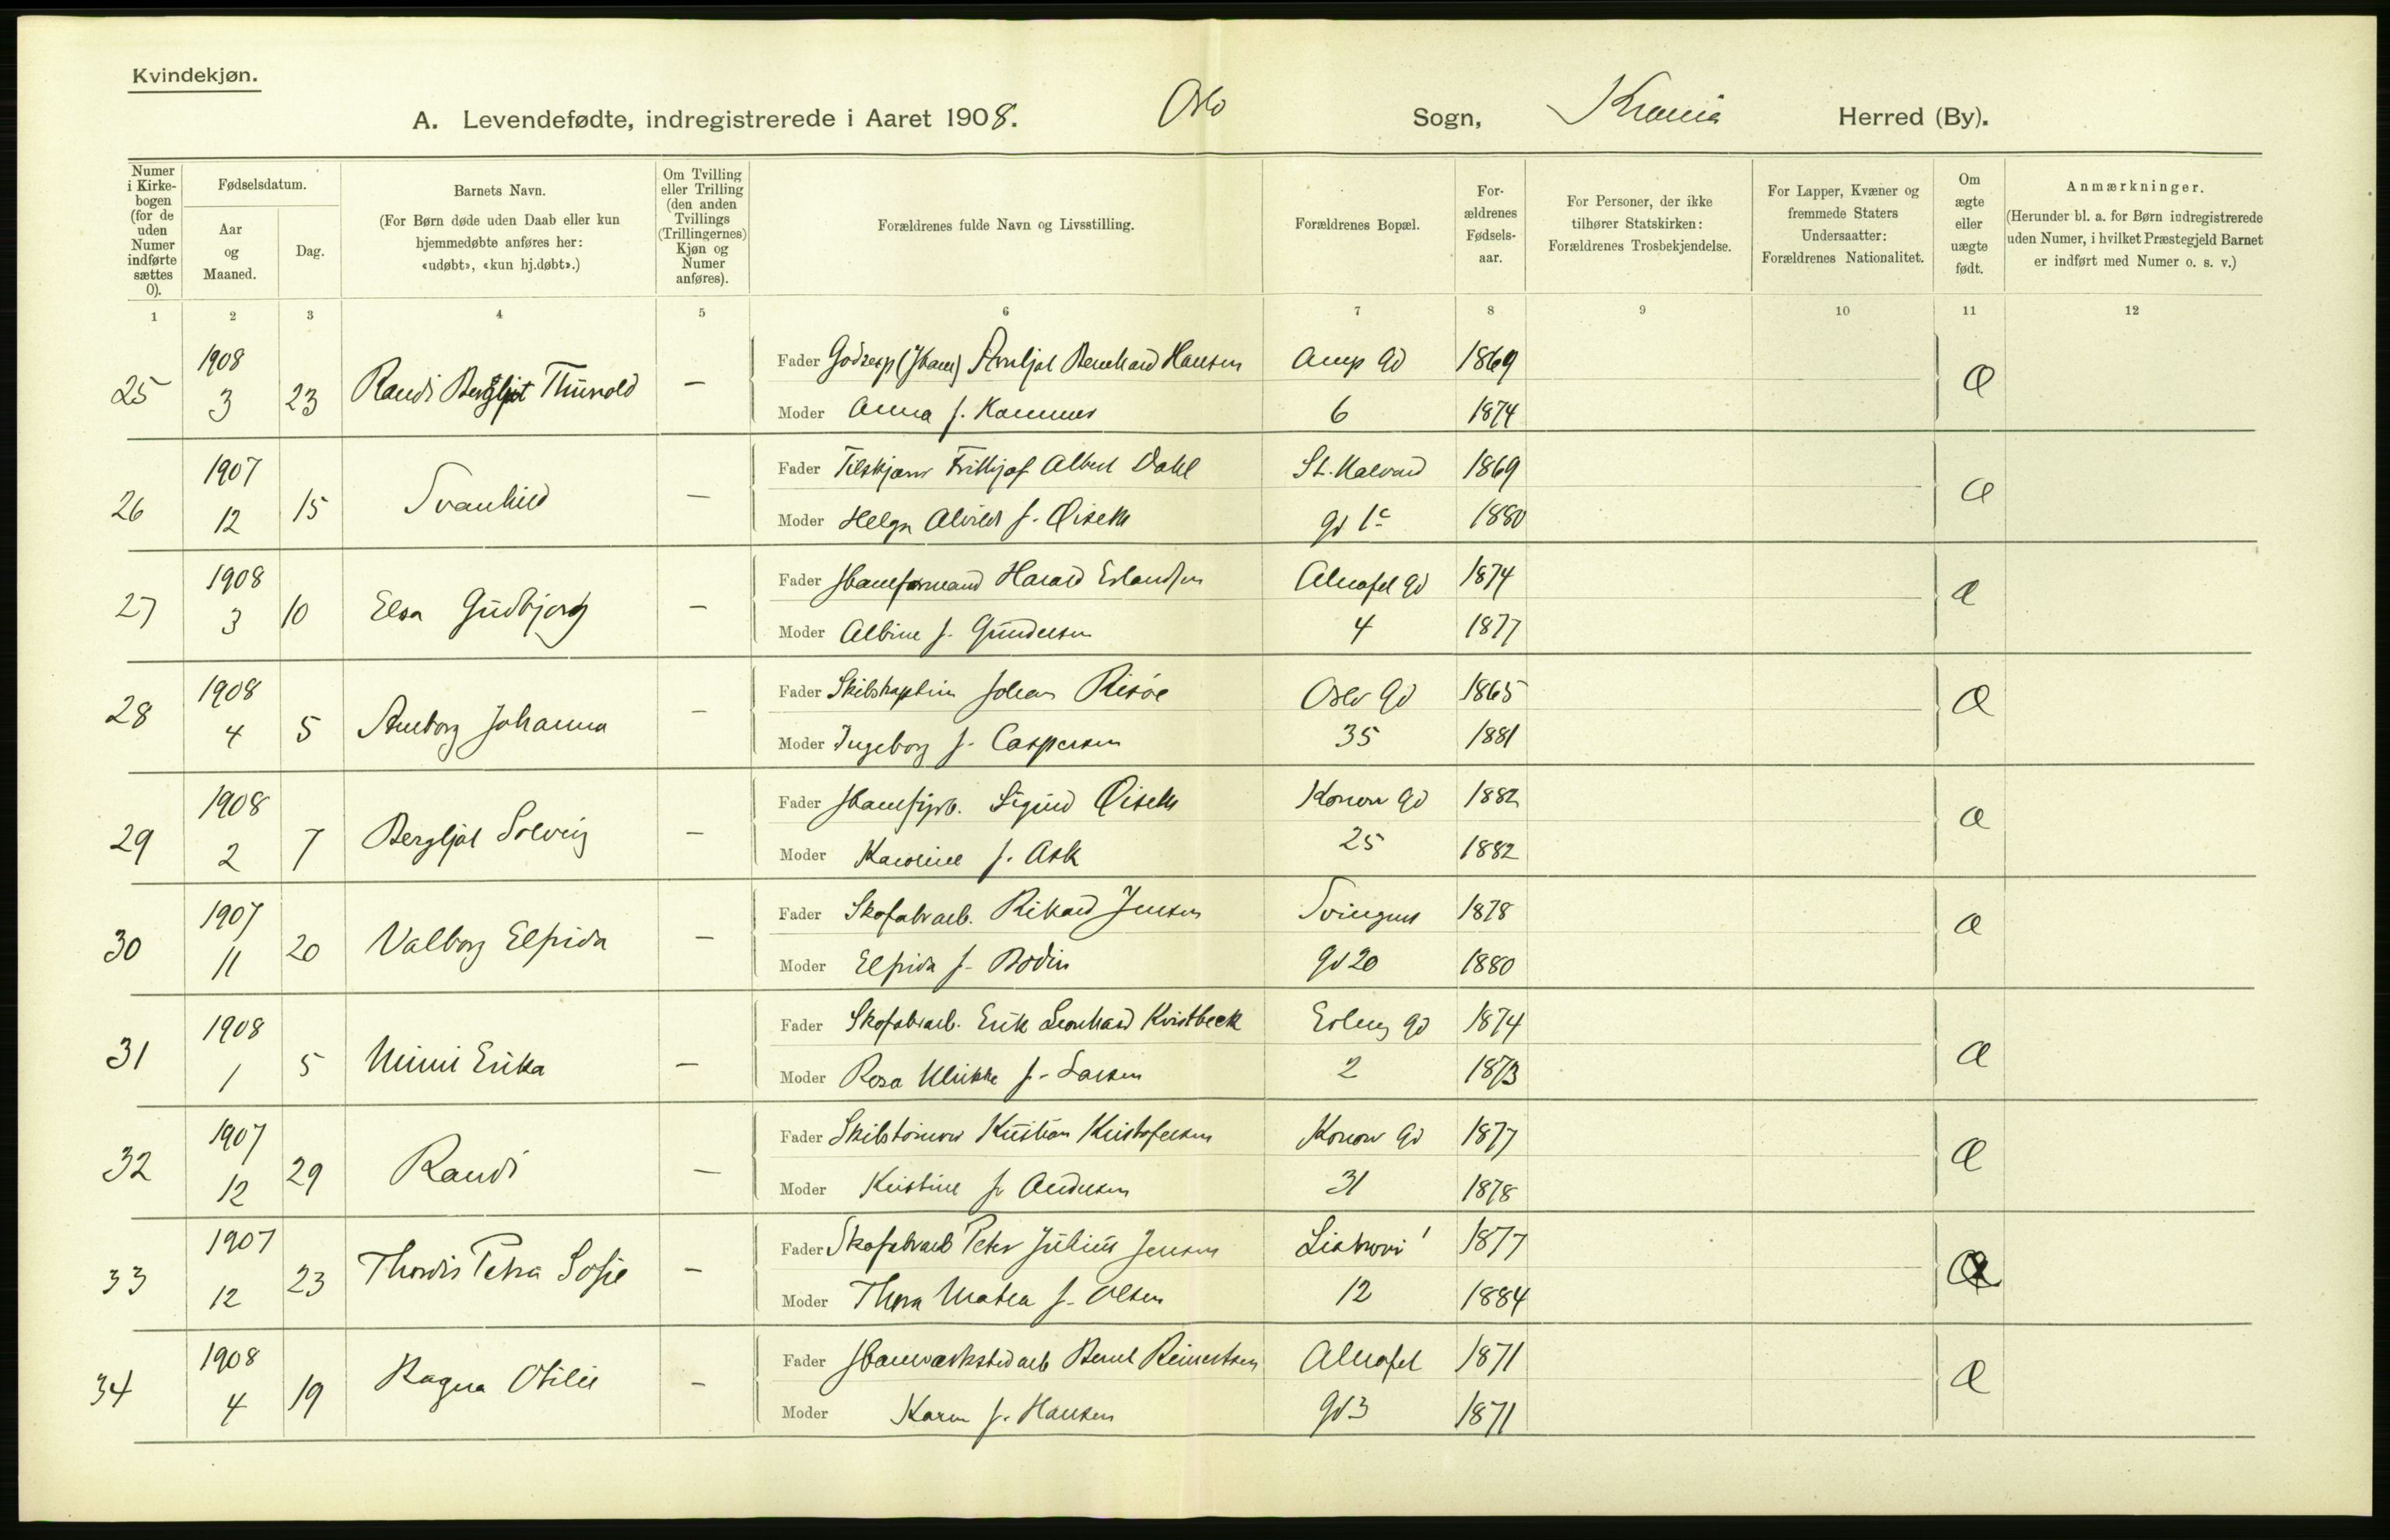 Kvindekjøn.
A. Levendefødte, indregistrerede i Aaret 1908. Oslo Sogn, Krania Herred (By).
Numer i Kirkebogen (for de uden Numer indførte sættes 0).
Fødselsdatum.
Aar og Maaned.
Dag.
Barnets Navn.
(For Børn døde uden Daab eller kun hjemmedøbte anføres her: «udøbt», «kun hj.døbt».)
Om Tvilling eller Trilling (den anden Tvillings (Trillingernes) Kjøn og Numer anføres).
Forældrenes fulde Navn og Livsstilling.
Forældrenes Bopæl.
Forældrenes Fødselsaar.
For Personer, der ikke tilhører Statskirken: Forældrenes Trosbekjendelse.
For Lapper, Kvæner og fremmede Staters Undersaatter: Forældrenes Nationalitet.
Om ægte eller uægte født.
Anmærkninger.
(Herunder bl. a. for Børn indregistrerede uden Numer, i hvilket Præstegjeld Barnet er indført med Numer o. s. v.)
1 2 3 4 5 6 7 8 9 10 11 12
1908 Fader Bernhard Hansen gd 1869
25 3 23 Randi Bergljot Thunold — Æ
Moder Anna f. 6 1874
1907 Fader Frithjof Albert Dahl St. Halvard 1869
26 12 15 Svanhild — Æ
Moder Helga Alvilde f. gd 1c 1880
1908 Fader Harald Erlandsen gd 1874
27 3 10 Elsa Gudbjorg — Æ
Moder Albine f. Gundersen 4 1877
1908 Fader Skibskaptein Johan Risöe Oslo gd 1865
28 4 5 Johanna — Æ
Moder Ingeborg f. Caspersen 35 1881
1908 Fader Sigurd Konow gd 1882
29 2 7 Bergljot Solveig — Æ
Moder Karoline f. Ask 25 1882
1907 Fader Skofabrarb. Rikard Jensen 1878
30 11 20 Valborg Elfrida — Æ
Moder Elfrida f. Bodin gd 20 1880
1908 Fader Skofabrarb. Erik Leonhard Kvistbeck gd 1874
31 1 5 Mimi Erika — Æ
Moder Rosa Ulrikke f. Larsen 2 1873
1907 Fader Skibstömrer Kristian Kristofersen Konow gd 1877
32 12 29 Randi — Æ
Moder Kristine f. Andersen 31 1878
1907 Fader Skofabrarb Peter Julius Jensen 1877
33 12 23 Thordis Petra Sofie — Æ
Moder Thora Mathea f. Olsen 12 1884
1908 Fader Bernt Reinertsen 1871
34 4 19 Ragna Otilie — Æ
Moder Karen f. Hansen gd 3 1871